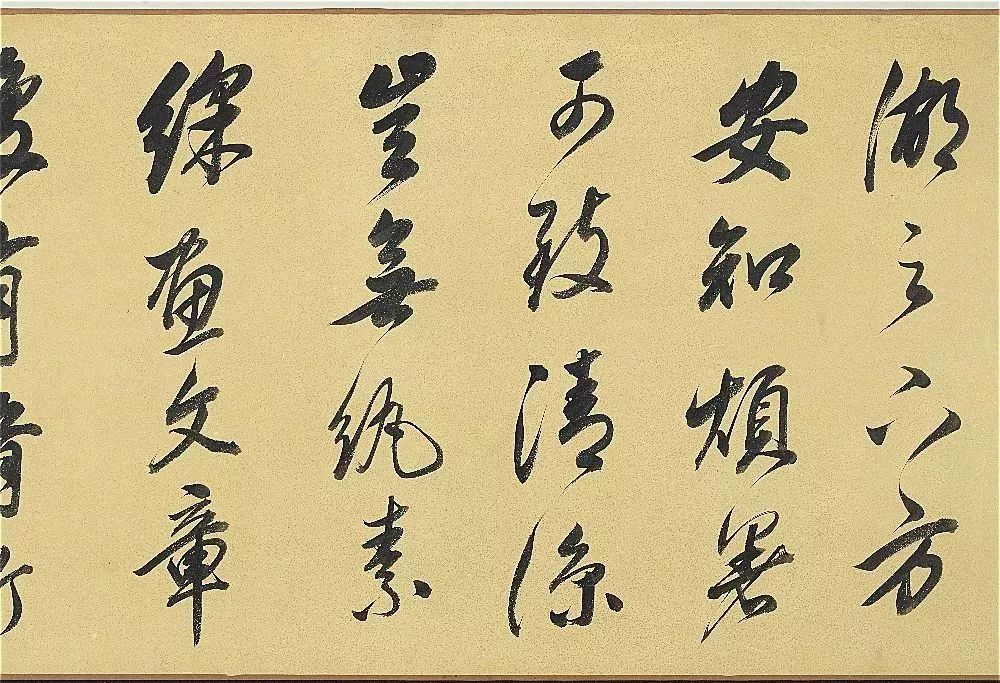 湖之方
安知煩暑
可致清涼
豈無紈素
綵畫文章